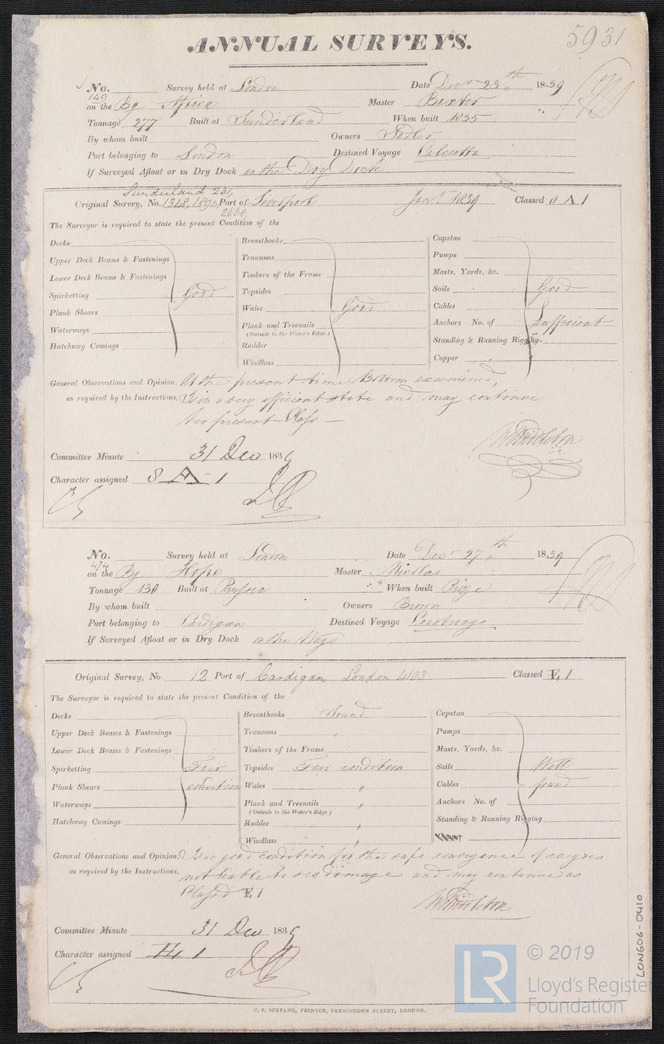 ANNUAL SURVEYS.
5931
No. 149 Survey held at London Date Decr 23th 1839
on the Bg Africa Master Baxter
Tonnage 277 Built at Sunderland When built 1835
By whom built Owners
Port belonging to London Destined Voyage Calcutta
If Surveyed Afloat or in Dry Dock in the Dry Dock
Sunderland 231,
Original Survey, No. Port of Liverpool Jany 1839 Classed A 1
The Surveyor is required to state the present Condition of the
Decks Breasthooks Capstan
Upper Deck Beams & Fastenings Transoms Pumps
Lower Deck Beams & Fastenings Timbers of the Frame Masts, Yards, &c.
Spirketting Good Topsides Sails Good
Plank Shears Wales Good Cables
Waterways Plank and Treenails Anchors No. of Sufficient
(Outside to the Water's Edge.)
Hatchway Comings Rudder Standing & Running Rigging.
Windlass Copper
General Observations and Opinion, At the present time Bottom examined,
as required by the Instructions, Is in a very efficient state and may continue
her present Class
Committee Minute 31 Dec 1839
Character assigned 8 A 1
No. 474 Survey held at London Date Decr 27th 1839
on the Bg Hope Master Nicolas
Tonnage 130 Built at Prussia When built Prize
By whom built Owners Brown
Port belonging to Cardigan Destined Voyage Coastways
If Surveyed Afloat or in Dry Dock
Original Survey, No. 12 Port of Cardigan London 4103 Classed E 1
The Surveyor is required to state the present Condition of the
Decks Breasthooks Sound Capstan
Upper Deck Beams & Fastenings Transoms " Pumps
Lower Deck Beams & Fastenings Timbers of the Frame Masts, Yards, &c.
Spirketting Fair Topsides Fair condition Sails Well
Plank Shears condition Wales " Cables found
Waterways Plank and Treenails " Anchors No. of
(Outside to the Water's Edge.)
Hatchway Comings Rudder " Standing & Running Rigging
Windlass "
General Observations and Opinion, Is in good condition for the safe conveyance of cargoes
as required by the Instructions, not liable to sea damage and may continue as
Classed E 1
Committee Minute 31 Dec 1839
Character assigned E 1
LON606-0410
LR © 2019
Lloyd's Register
Foundation
PRINTER, FARRINGDON STREET, LONDON.